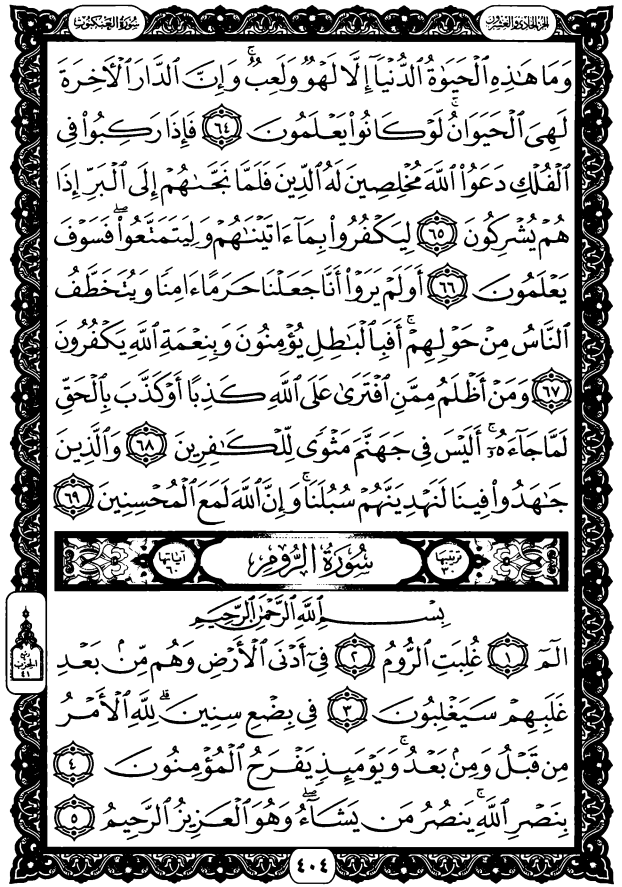 الجزء الحادي والعشرون
سورة العنكبوت
وَمَا هَٰذِهِ ٱلْحَيَوٰةُ ٱلدُّنْيَآ إِلَّا لَهْوٌ وَلَعِبٌ ۚ وَإِنَّ ٱلدَّارَ ٱلْأَخِرَةَ
لَهِىَ ٱلْحَيَوَانُ ۚ لَوْ كَانُوا۟ يَعْلَمُونَ ٦٤ فَإِذَا رَكِبُوا۟ فِى
ٱلْفُلْكِ دَعَوُا۟ ٱللَّهَ مُخْلِصِينَ لَهُ ٱلدِّينَ فَلَمَّا نَجَّىٰهُمْ إِلَى ٱلْبَرِّ إِذَا
هُمْ يُشْرِكُونَ ٦٥ لِيَكْفُرُوا۟ بِمَآ ءَاتَيْنَٰهُمْ وَلِيَتَمَتَّعُوا۟ ۖ فَسَوْفَ
يَعْلَمُونَ ٦٦ أَوَلَمْ يَرَوْا۟ أَنَّا جَعَلْنَا حَرَمًا ءَامِنًا وَيُتَخَطَّفُ
ٱلنَّاسُ مِنْ حَوْلِهِمْ ۚ أَفَبِٱلْبَٰطِلِ يُؤْمِنُونَ وَبِنِعْمَةِ ٱللَّهِ يَكْفُرُونَ
٦٧ وَمَنْ أَظْلَمُ مِمَّنِ ٱفْتَرَىٰ عَلَى ٱللَّهِ كَذِبًا أَوْ كَذَّبَ بِٱلْحَقِّ
لَمَّا جَآءَهُۥٓ ۚ أَلَيْسَ فِى جَهَنَّمَ مَثْوًى لِّلْكَٰفِرِينَ ٦٨ وَٱلَّذِينَ
جَٰهَدُوا۟ فِينَا لَنَهْدِيَنَّهُمْ سُبُلَنَا ۚ وَإِنَّ ٱللَّهَ لَمَعَ ٱلْمُحْسِنِينَ ٦٩
ترتيبها ٣٠
سُورَةُ الرُّومِ
آياتها ٦٠
بِسْمِ ٱللَّهِ ٱلرَّحْمَٰنِ ٱلرَّحِيمِ
الٓمٓ ١ غُلِبَتِ ٱلرُّومُ ٢ فِىٓ أَدْنَى ٱلْأَرْضِ وَهُم مِّنۢ بَعْدِ
غَلَبِهِمْ سَيَغْلِبُونَ ٣ فِى بِضْعِ سِنِينَ ۗ لِلَّهِ ٱلْأَمْرُ
مِن قَبْلُ وَمِنۢ بَعْدُ ۚ وَيَوْمَئِذٍ يَفْرَحُ ٱلْمُؤْمِنُونَ ٤
بِنَصْرِ ٱللَّهِ ۚ يَنصُرُ مَن يَشَآءُ ۖ وَهُوَ ٱلْعَزِيزُ ٱلرَّحِيمُ ٥
ربع الحزب ٤١
٤٠٤